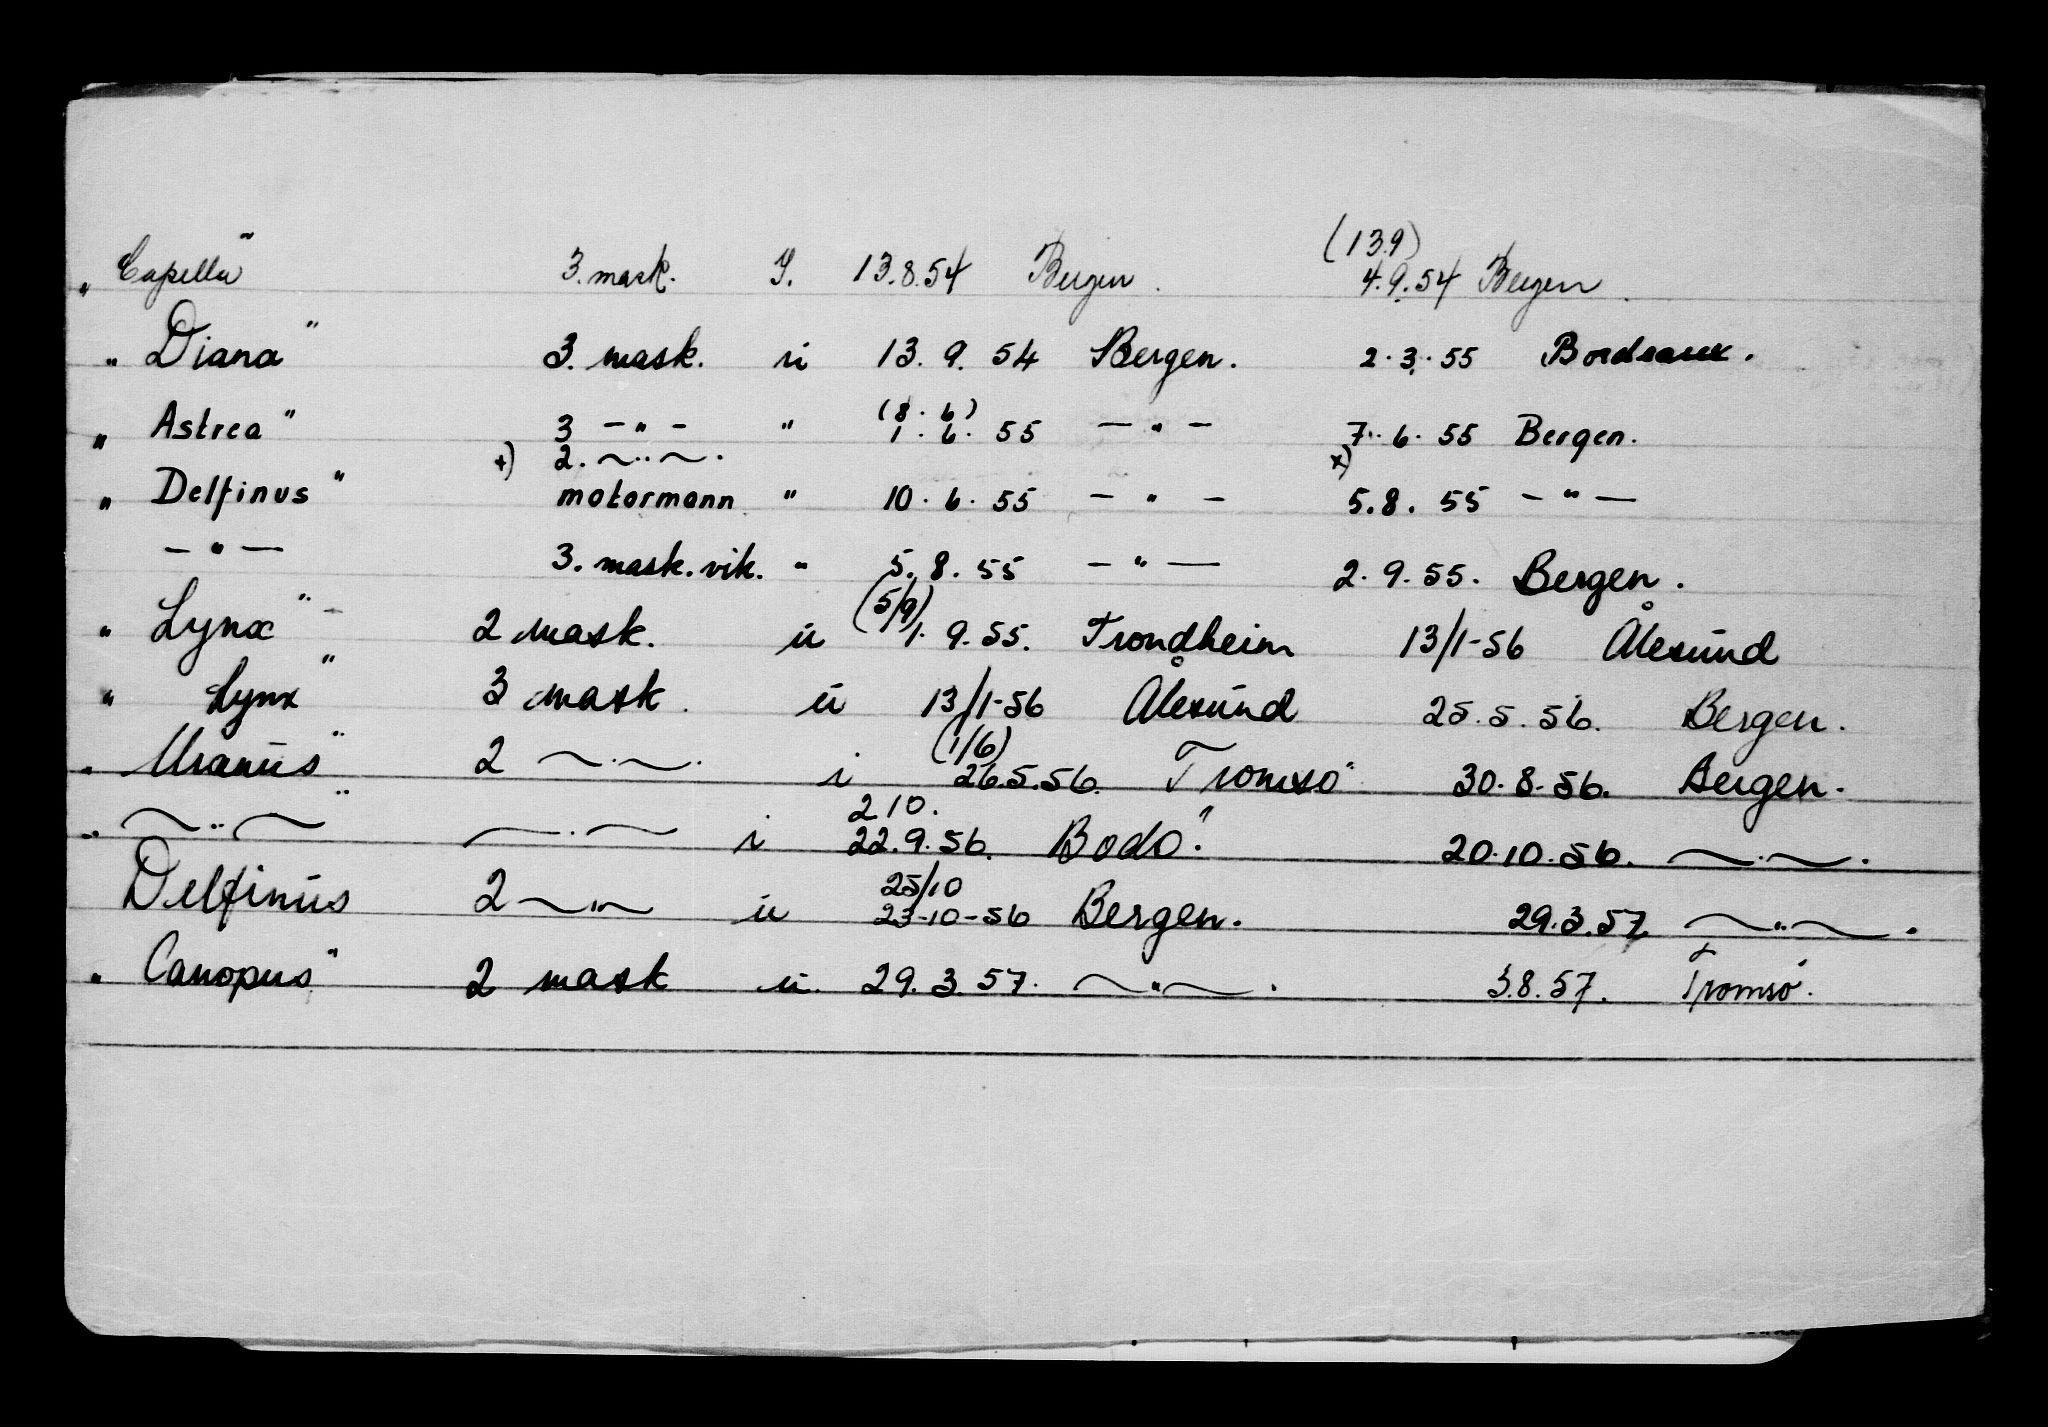 (13.9)
„ Capella" 3. mask. I. 13.8.54 Bergen. 4.9.54 Bergen.
„ Diana" 3. mask. i 13. 9. 54 Bergen. 2. 3. 55 Bordeaux.
(8. 6)
„ Astrea" 3 - " - " 1. 6. 55 - " - 7. 6. 55 Bergen.
+) 2. ~ .. ~ . x)
„ Delfinus" motormann " 10. 6. 55 - " - 5. 8. 55 - " -
- " - 3. mask. vik. " 5. 8. 55 - " - 2. 9. 55. Bergen.
(5/9)
" Lynx" 2 mask. i 1. 9. 55. Trondheim 13/1-56 Ålesund
" Lynx" 3 mask. i 13/1-56 Ålesund 25. 5. 56. Bergen.
(1/6)
„ Uranus" 2 ~ . ~ . i 26.5.56. Tromsø 30. 8. 56. Bergen.
2 10.
„ ~ .. ~ " ~ . ~ i 22. 9. 56. Bodø. 20. 10. 56. ~ . ~ .
25/10
Delfinus 2 ~ " ~ i 23-10-56 Bergen. 29. 3. 57 ~ " ~ .
„ Canopus" 2 mask i. 29. 3. 57. ~ " ~ . 3.8.57. Tromsø.